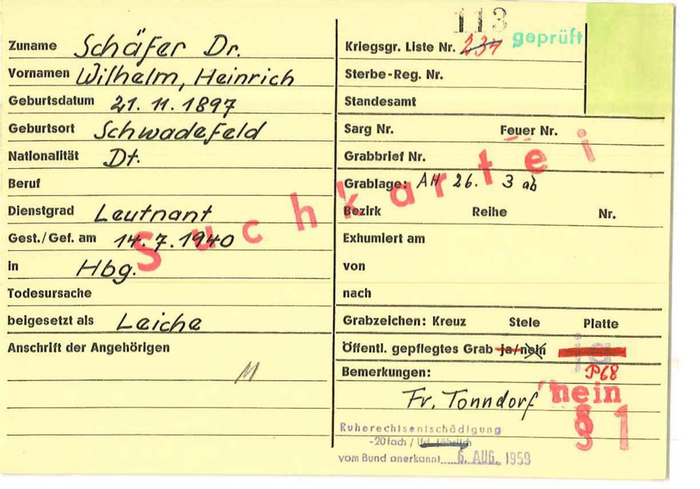 113 geprüft
Zuname Schäfer Dr.
Vornamen Wilhelm, Heinrich
Geburtsdatum 21. 11. 1897
Geburtsort Schwadefeld
Nationalität Dt.
Beruf
Dienstgrad Leutnant
Gest./Gef. am 14. 7. 1940
in Hbg.
Todesursache
beigesetzt als Leiche
Anschrift der Angehörigen
Suchkartei
Kriegsgr. Liste Nr. 231
Sterbe-Reg. Nr.
Standesamt
Sarg Nr. Feuer Nr.
Grabbrief Nr.
Grablage: AH 26. 3 ab
Bezirk Reihe Nr.
Exhumiert am
von
nach
Grabzeichen: Kreuz Stele Platte
Öffentl. gepflegtes Grab ja/nein
Bemerkungen: P68
nein
Fr. Tonndorf
Ruherechtsentschädigung
-20fach /
vom Bund anerkannt 6. AUG. 1959